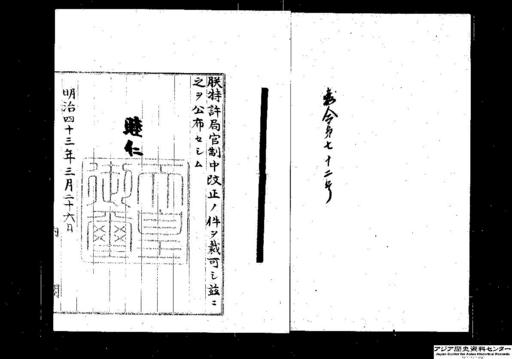 勅令第七十二号
朕特許局官制中改正ノ件ヲ裁可シ茲ニ
之ヲ公布セシム
睦仁
天皇御璽
明治四十三年三月二十六日
内
閣
アジア歴史資料センター
Japan Center for Asian Historical Records